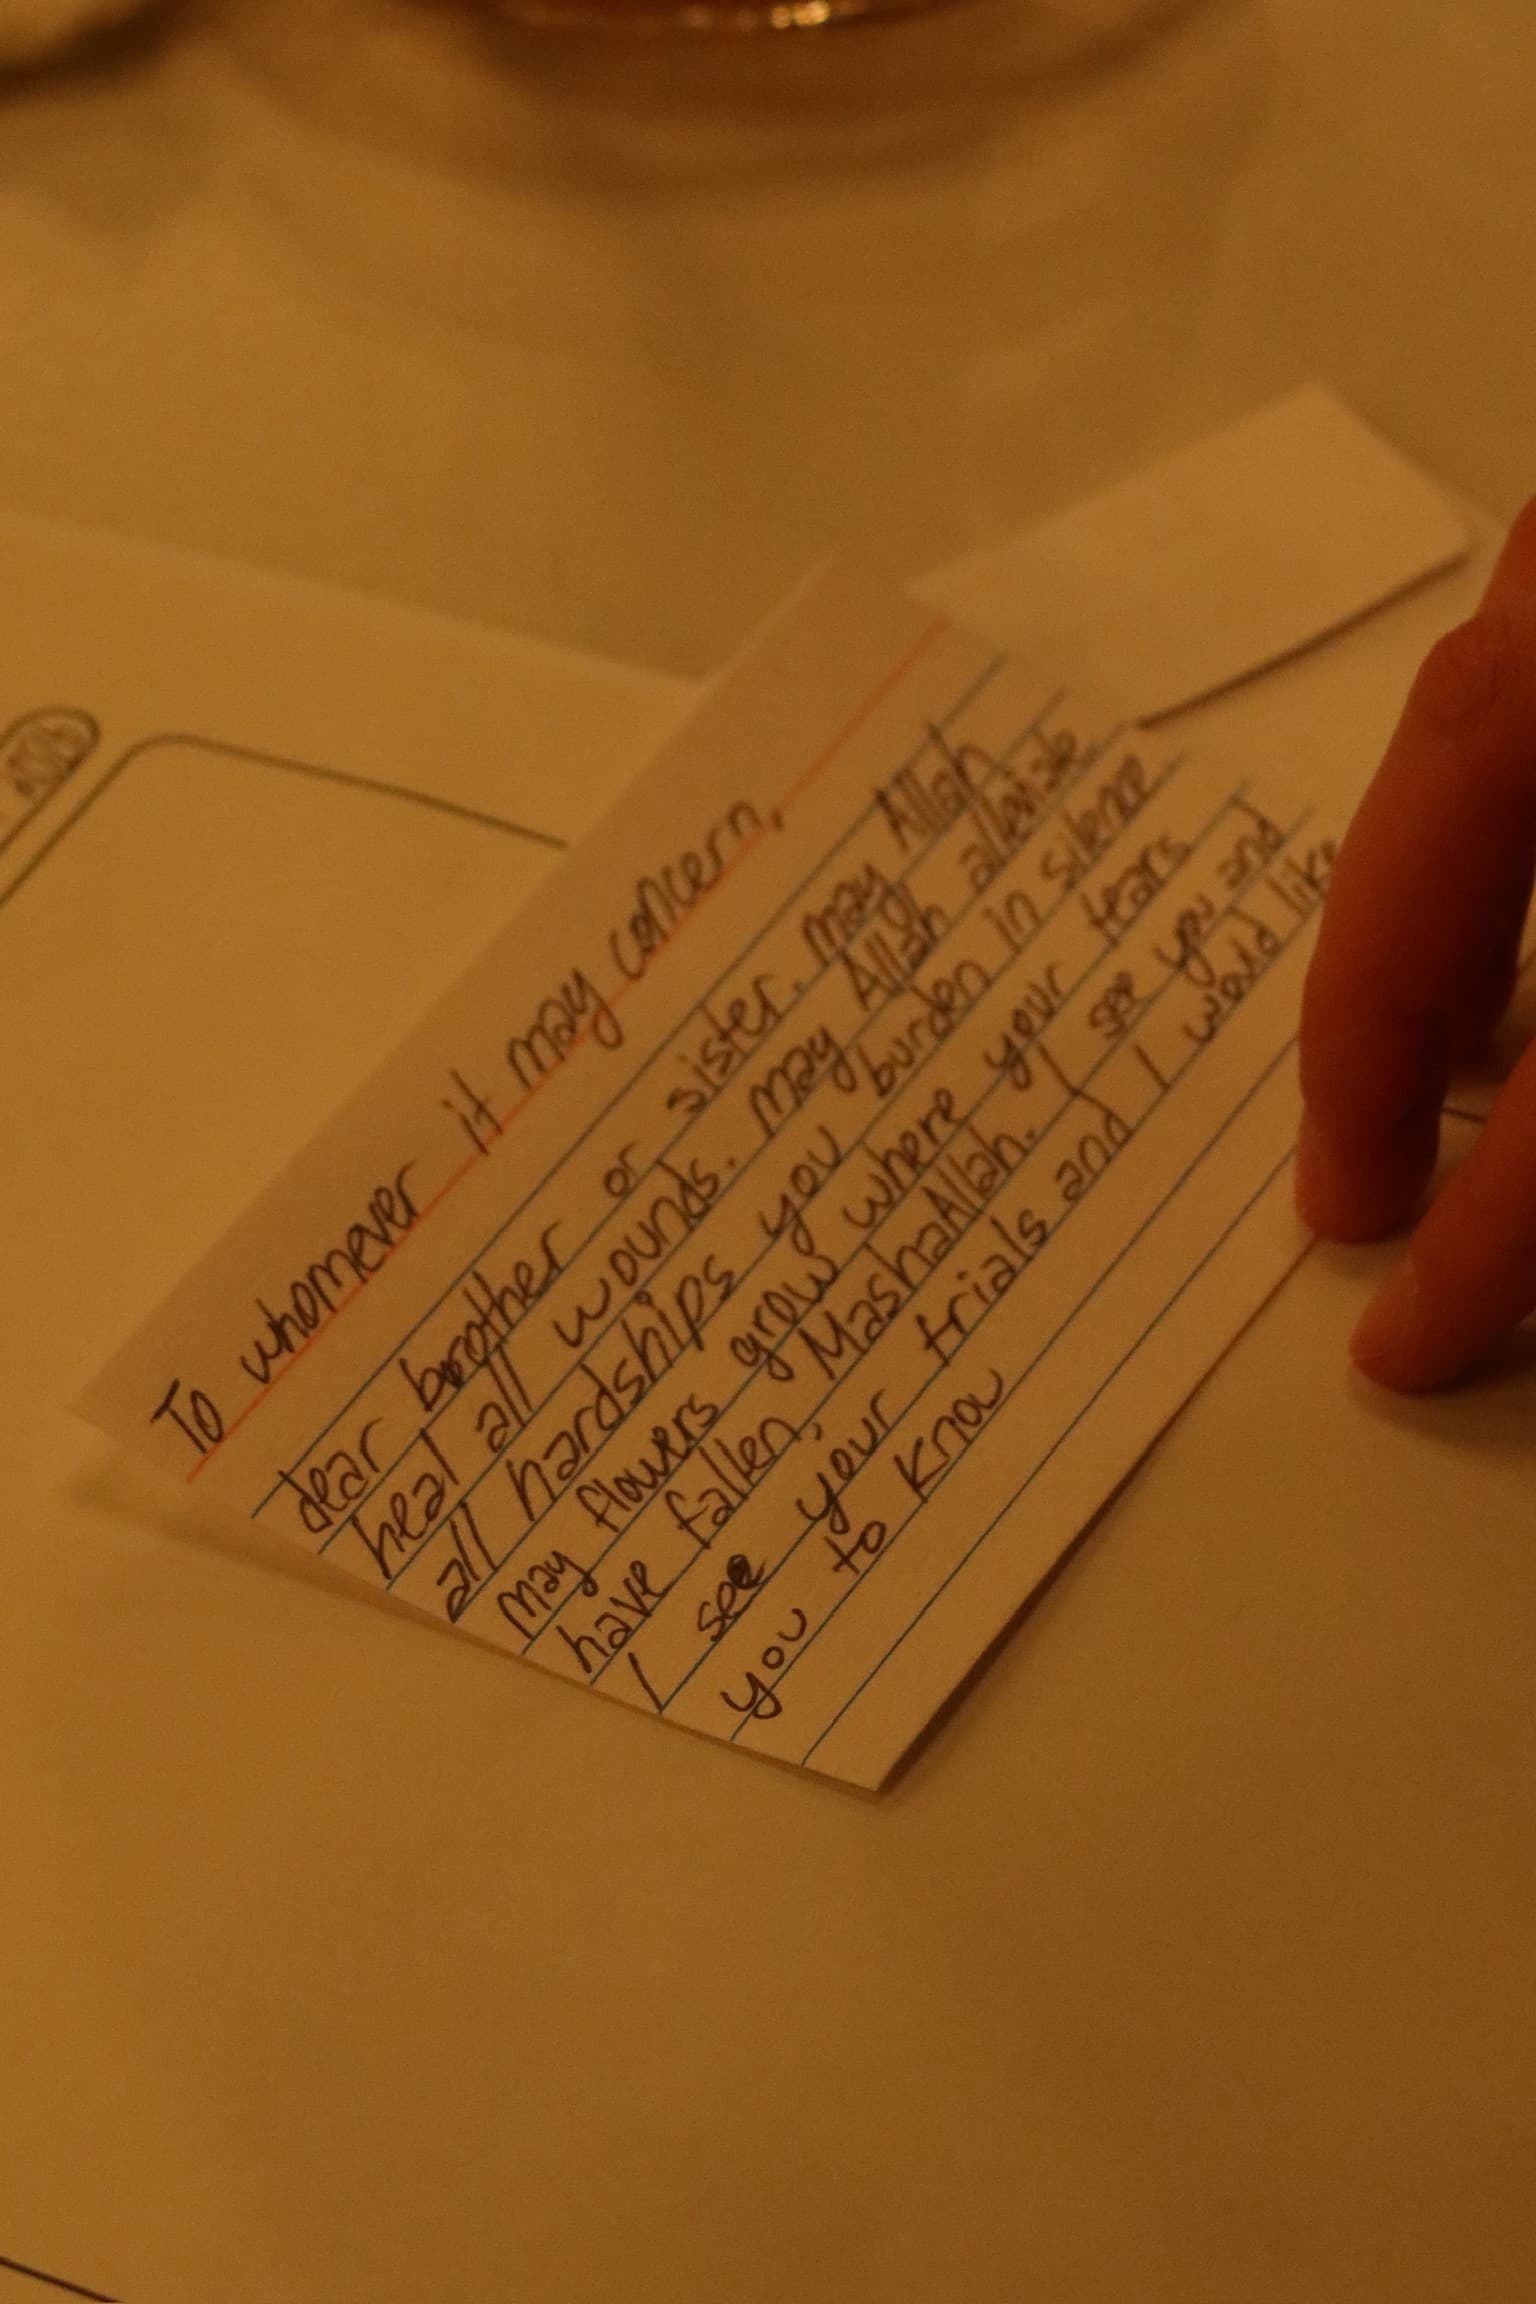 To whomever it may concern,
dear brother or sister. may Allah
heal all wounds. may Allah alleviate
all hardships you burden in silence
may flowers grow where your tears
have fallen, MashaAllah. I see you and
I see your trials and I would like
you to know